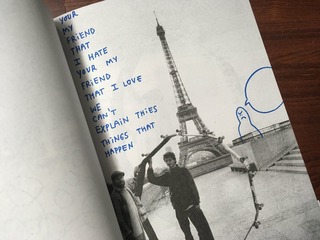 YOUR
MY
FRiEND
THAT
I HATE
YOUR MY
FRiEND
THAT I LOVE
WE
CAN'T
EXPLAIN THiES
THiNGS THAT
HAPPEN